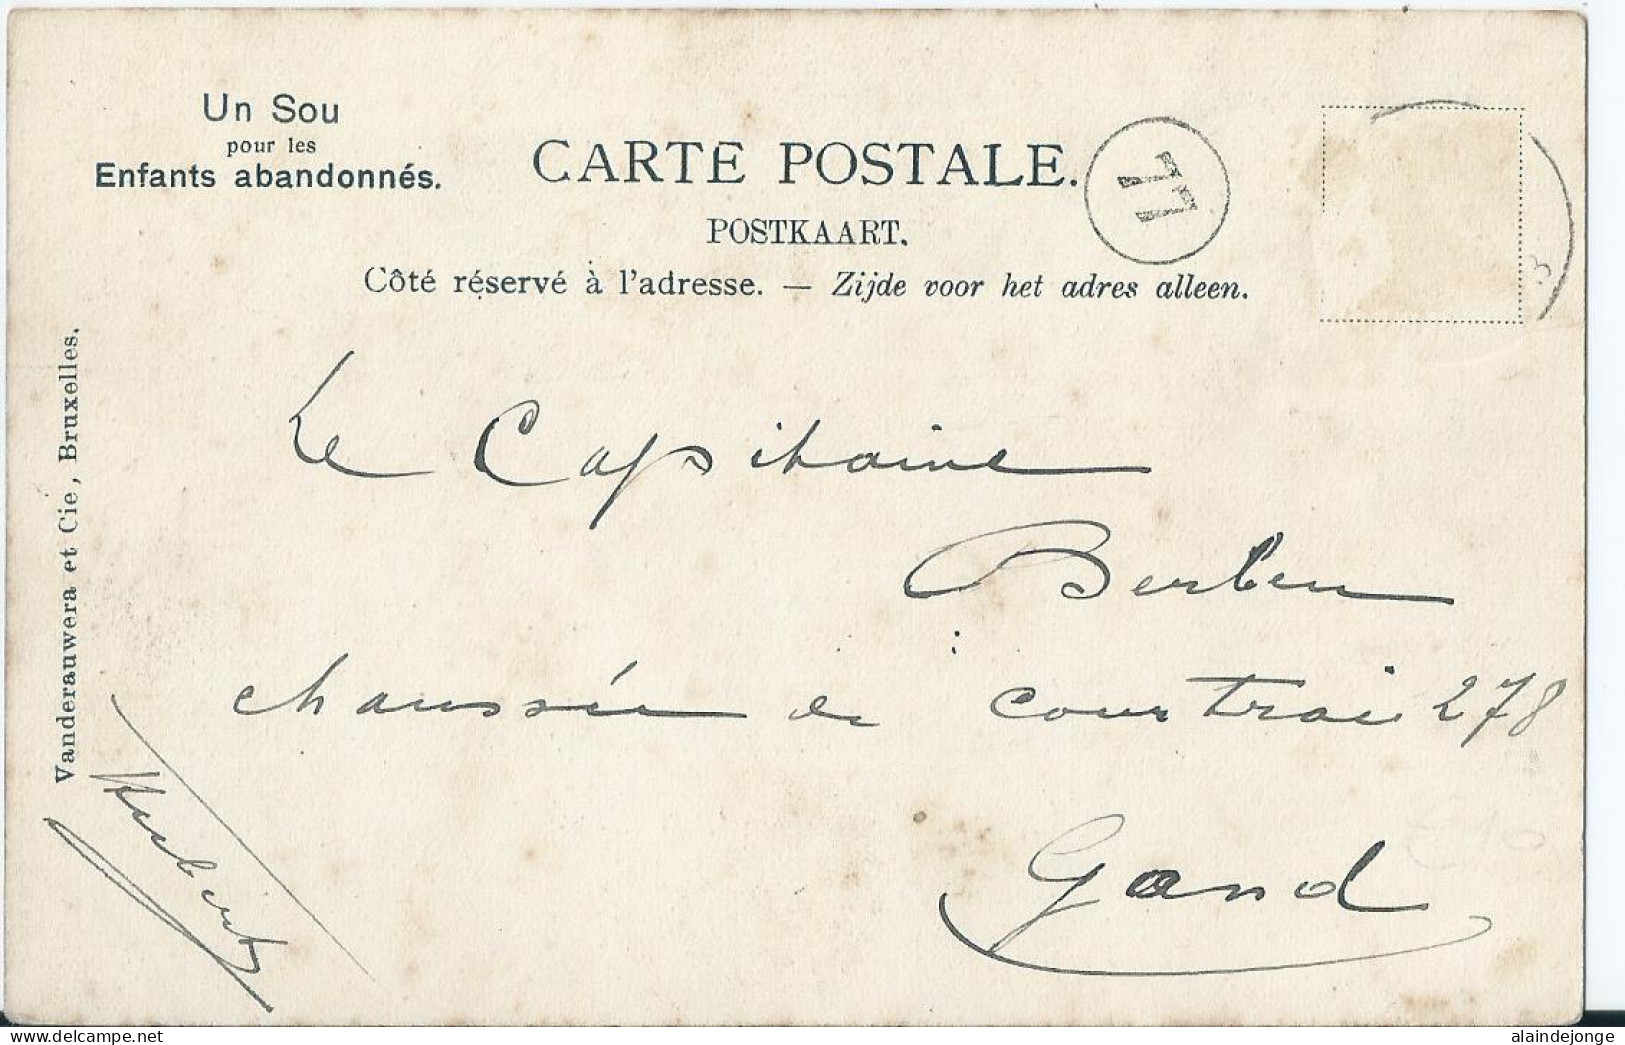 Un Sou
pour les
Enfants abandonnés.
CARTE POSTALE.
77
POSTKAART.
Côté réservé à l'adresse. — Zijde voor het adres alleen.
Vanderauwera et Cie, Bruxelles.
Le Capitaine
Berben
chaussée de Courtrai 278
Gand
delcampe.net
alaindejonge